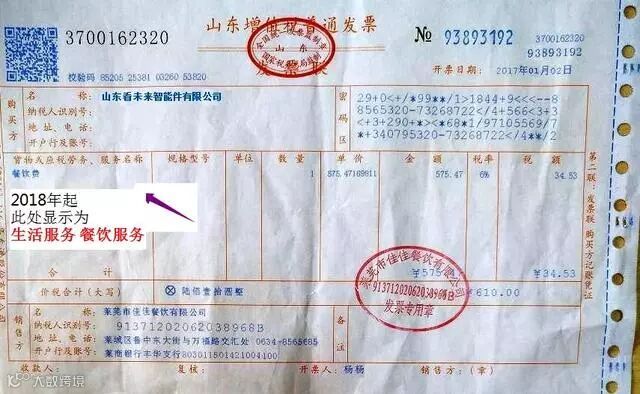 3700162320
山东增值税普通发票
№ 93893192
93893192
校验码 85205 25381 03260 53820
全国统一发票监制章
山东
国家税务总局监制
发票联
开票日期: 2017年01月02日
购买方
名称: 山东看未来智能件有限公司
纳税人识别号:
地址、电话:
开户行及账号:
密码区
29+0<+/*99**/1>1844+9<<--8
8565320-73268722/+566<3+3
<+3+290+><*68*1/97105569/7
*+340795320-73268722/+4**/2
货物或应税劳务、服务名称 规格型号 单位 数量 单价 金额 税率 税额
餐饮费 1 575.47169811 575.47 6% 34.53
2018年起
此处显示为
生活服务 餐饮服务
合计 ¥575 ¥34.53
价税合计(大写) ⊗ 陆佰壹拾圆整 ¥610.00
销售方
名称: 莱芜市佳佳餐饮有限公司
纳税人识别号: 91371202062038968B
地址、电话: 莱城区鲁中东大街与万福路交汇处 0634-8565685
开户行及账号: 莱商银行丰华支行803011501421004100
莱芜市佳佳餐饮有限公司
91371202062038968B
发票专用章
收款人: 复核: 开票人: 杨杨 销售方:(章)
第二联:发票联 购买方记账凭证
大数跨境